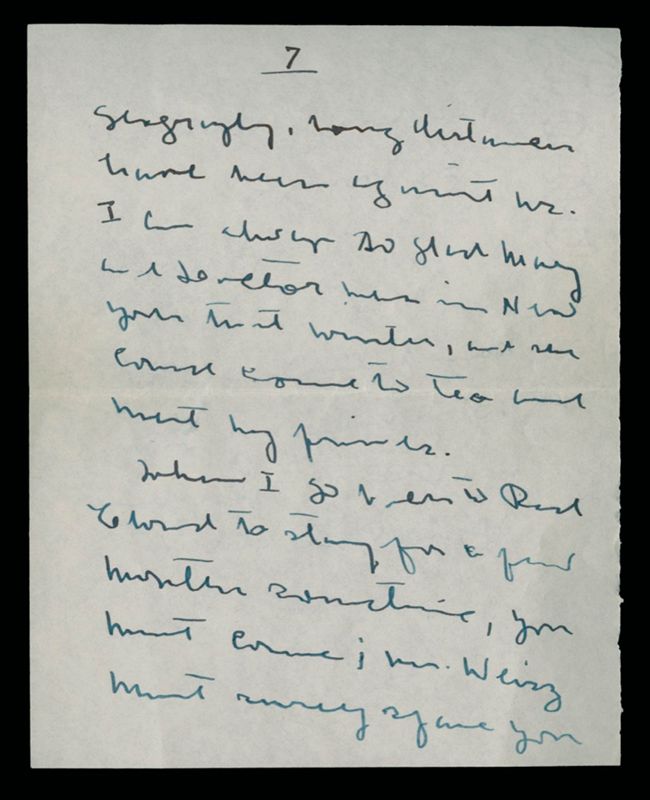 7
geography, long distances
have been against us.
I am always so glad Mary
and Doctor were in New
York that winter, and she
could come to tea and
meet my friends.
When I go back to Red
Cloud to stay, for a few
months sometime, you
must come; Mr. Weisz
must surely spare you